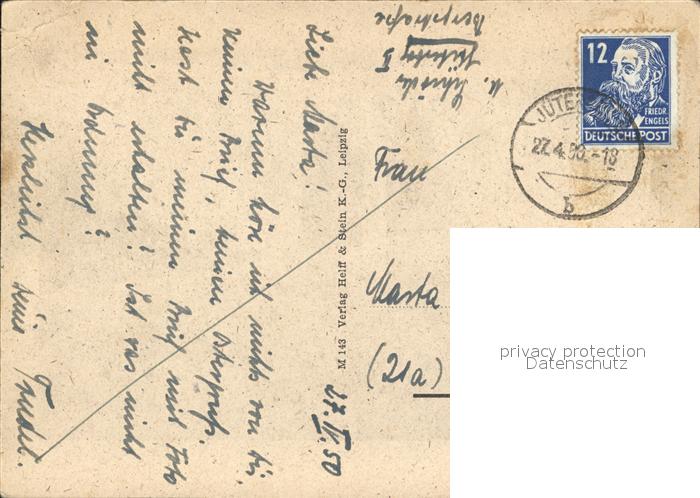 27.IV.50
Liebe Marta!
Warum höre ich nichts von Dir,
keinen Brief, keinen Ostergruß.
Hast Du meinen Brief mit Foto
nicht erhalten? Ist was nicht
in Ordnung?
Herzlichst Deine Trudel.
M 143 Verlag Helff & Stein K.-G., Leipzig
Jüterbog II
12
FRIEDR.
ENGELS
DEUTSCHE POST
27.4.50.-18
b
Frau
Marta
(21a)
privacy protection
Datenschutz